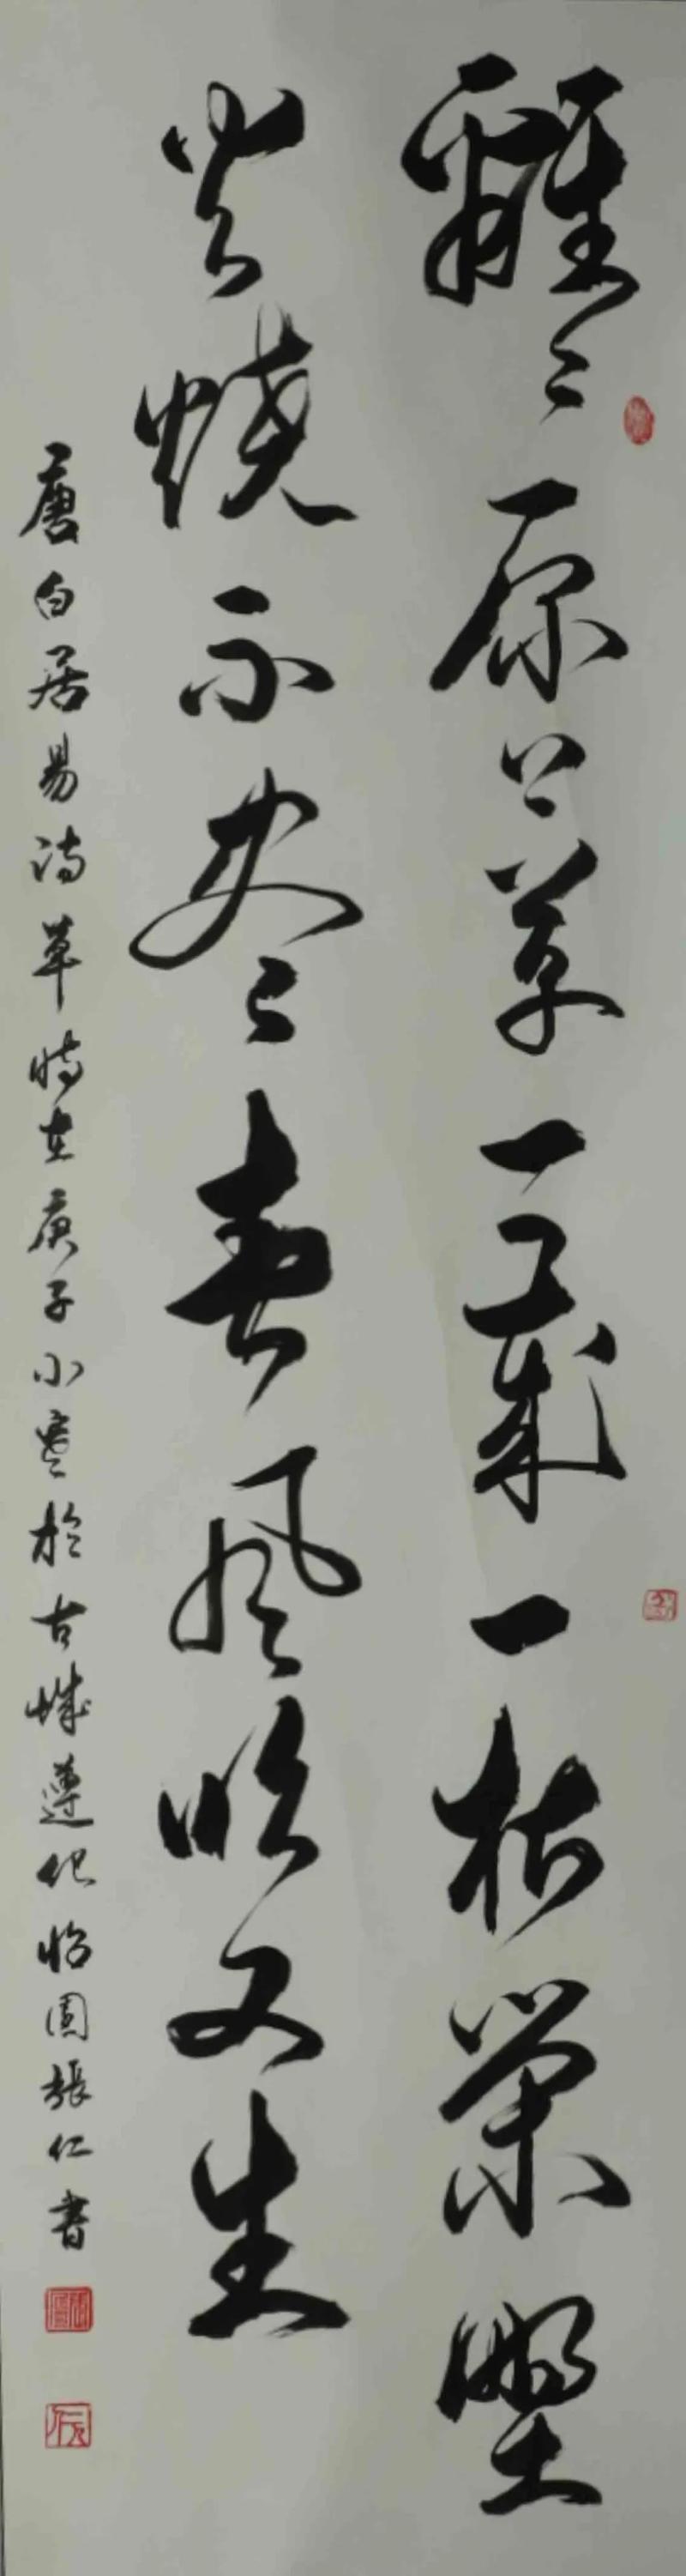 離〻原上草一歲一枯榮野
火燒不盡春風吹又生
唐白居易詩草時在庚子小寒於古城遵化怡園張仁書